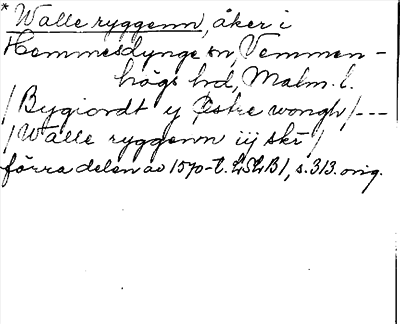 * Walle ryggenn, åker i
Hemmesdynge sn, Vemmen-
högs hd, Malm. l.
/ Bygiordt y Østre wongh / ---
/ Walle ryggenn iij skr /
förra delen av 1570-t. LSLB1, s. 313. orig.